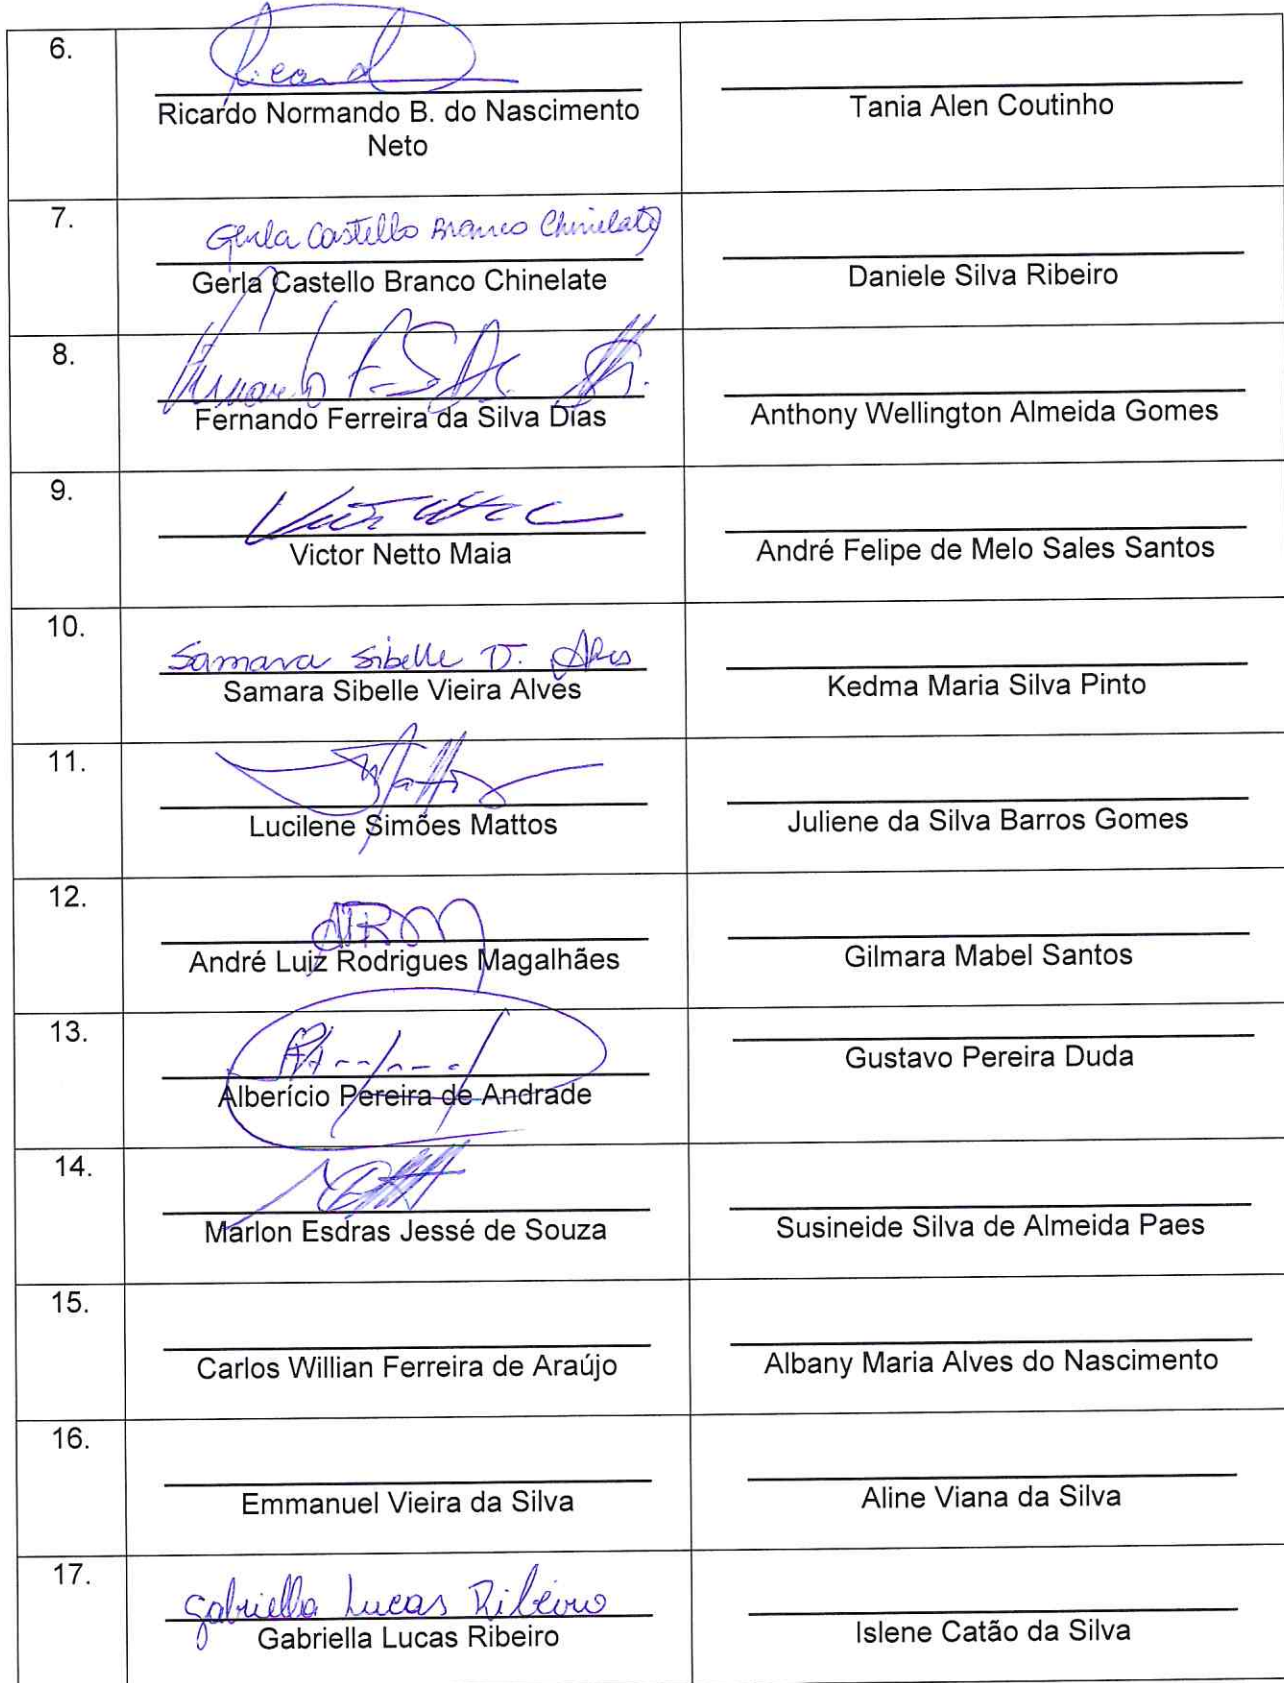 6.
Ricardo
Ricardo Normando B. do Nascimento
Neto
Tania Alen Coutinho
7.
Gerla Castello Branco Chinelate
Gerla Castello Branco Chinelate
Daniele Silva Ribeiro
8.
Fernando Ferreira da Silva Dias
Anthony Wellington Almeida Gomes
9.
Victor Netto Maia
André Felipe de Melo Sales Santos
10.
Samara Sibelle V. Alves
Samara Sibelle Vieira Alves
Kedma Maria Silva Pinto
11.
Lucilene Simões Mattos
Juliene da Silva Barros Gomes
12.
André Luiz Rodrigues Magalhães
Gilmara Mabel Santos
13.
Alberício Pereira de Andrade
Gustavo Pereira Duda
14.
Marlon Esdras Jessé de Souza
Susineide Silva de Almeida Paes
15.
Carlos Willian Ferreira de Araújo
Albany Maria Alves do Nascimento
16.
Emmanuel Vieira da Silva
Aline Viana da Silva
17.
Gabriella Lucas Ribeiro
Gabriella Lucas Ribeiro
Islene Catão da Silva